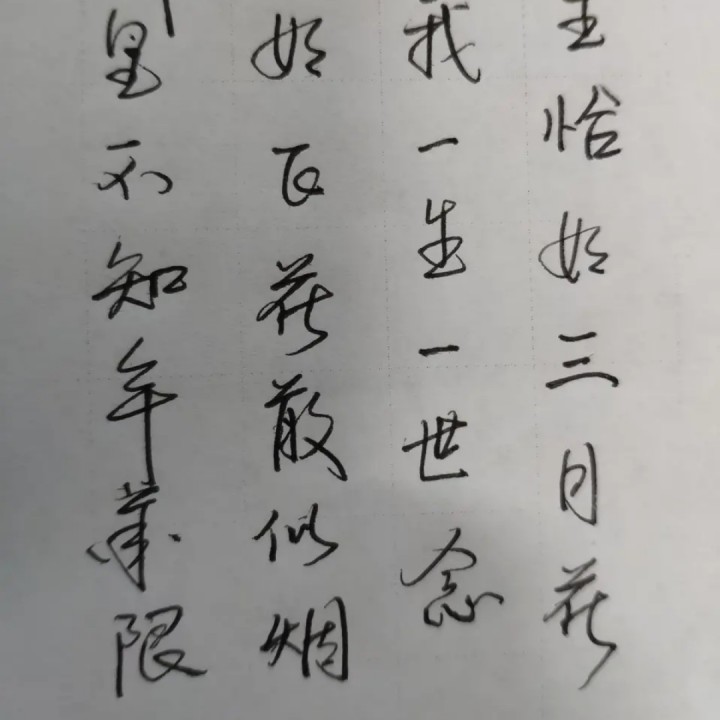 生恰如三月花
我一生一世念
如飞花散似烟
里不知年华限